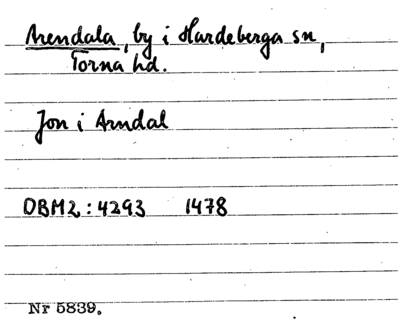 Arendala, by i Hardeberga sn,
Torna hd.
Jon i Arndal
DBM2:4293 1478
Nr 5839.